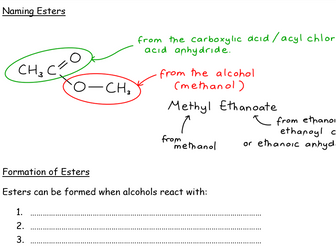 Naming Esters
from the carboxylic acid/acyl chlor
acid anhydride.
CH₃ C O
O — CH₃
from the alcohol
(methanol)
Methyl Ethanoate
from methanol
from ethano
ethanoyl c
or ethanoic anhyd
Formation of Esters
Esters can be formed when alcohols react with:
1. ..............................................................................
2. ..............................................................................
3. ..............................................................................